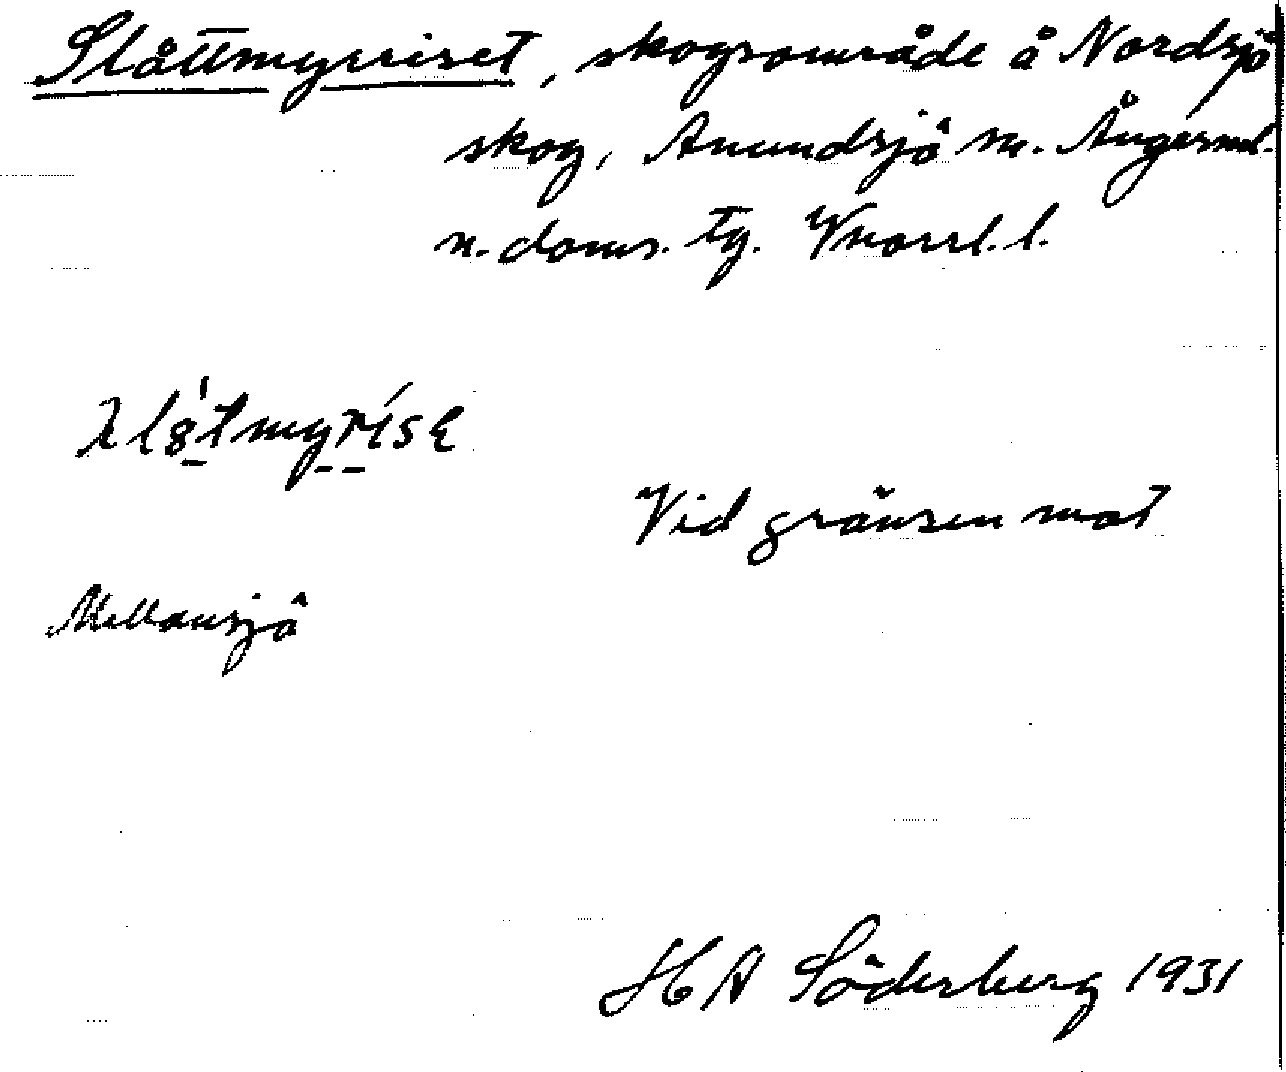 Slåttmyrriset, skogsområde å Nordsjö
skog, Anundsjö sn. Ångerml.
n. doms. tg. Vnorrl. l.
Vid gränsen mot
Mellansjö
H A Söderberg 1931